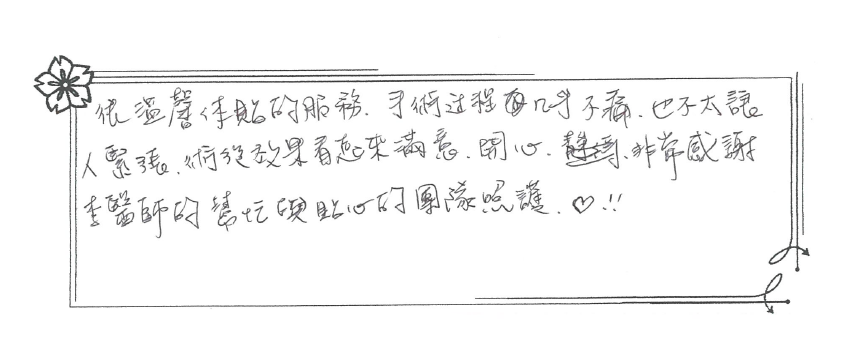 很溫馨体貼的服務. 手術过程几乎不痛. 也不太讓
人緊張. 術後效果看起來滿意. 開心. 非常感謝
李醫師的幫忙與貼心的團隊照護. ♡.!!